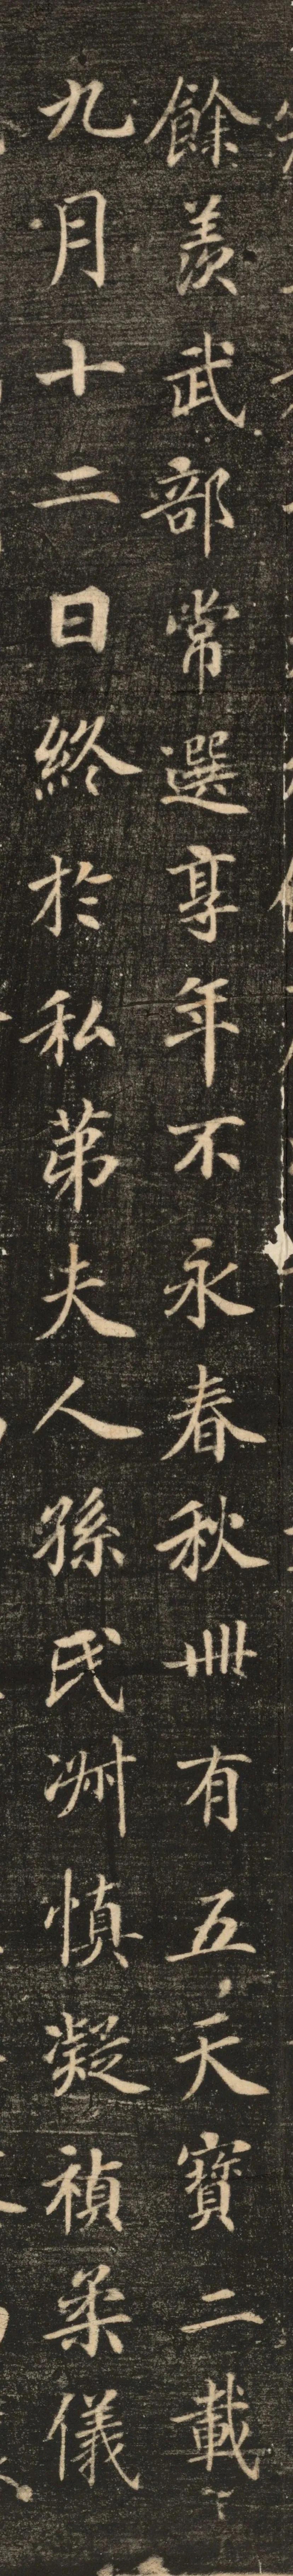 餘羡武部常選享年不永春秋卌有五天寶二載
九月十二日終於私苐夫人孫氏淑慎凝禎柔儀